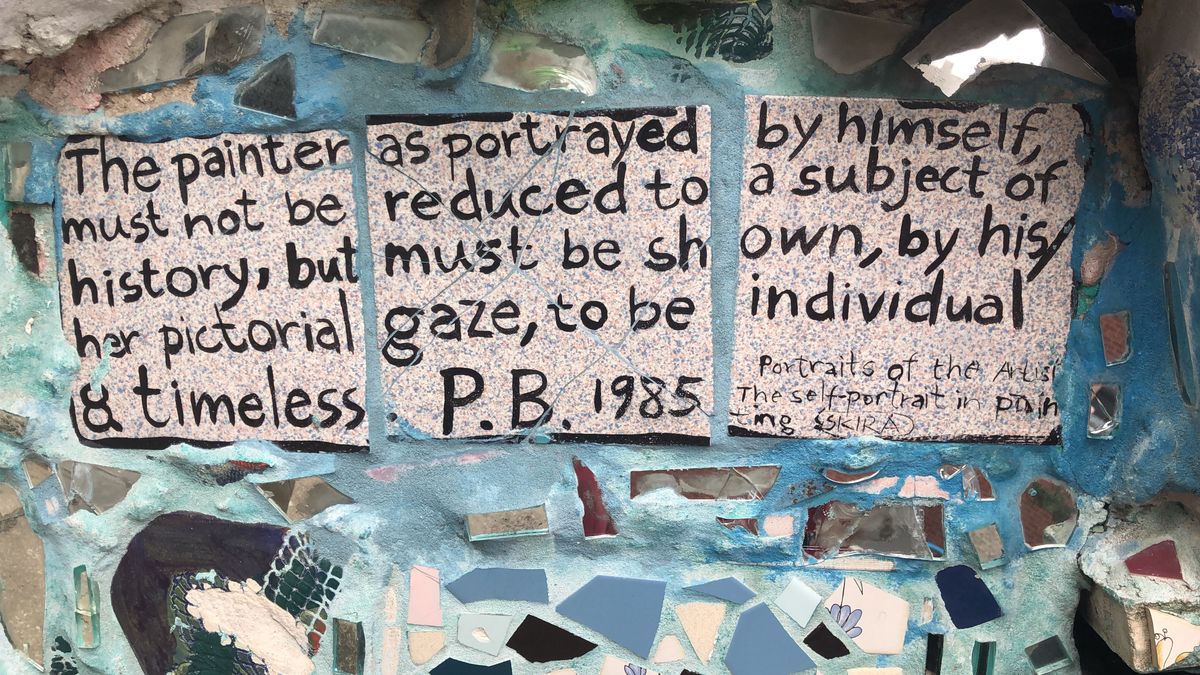 The painter as portrayed by himself,
must not be reduced to a subject of
history, but must be shown, by his/
her pictorial gaze, to be individual
& timeless. P.B. 1985
Portraits of the Artist
The self-portrait in pain
ting (SKIRA)